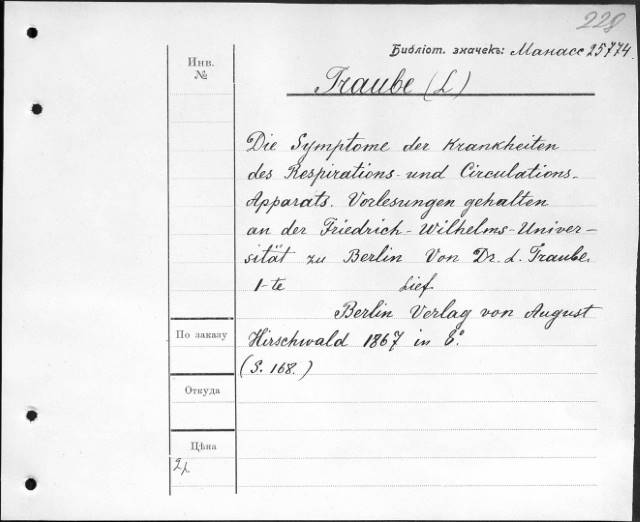 228
Библіот. значекъ: Манасс 25774.
Инв.
№
Traube (L)
Die Symptome der Krankheiten
des Respirations- und Circulations-
Apparats. Vorlesungen gehalten
an der Friedrich-Wilhelms-Univer-
sität zu Berlin Von Dr. L. Traube.
1-te Lief
Berlin Verlag von August
По заказу
Hirschwald 1867 in 8º.
(S. 168.)
Откуда
Цѣна